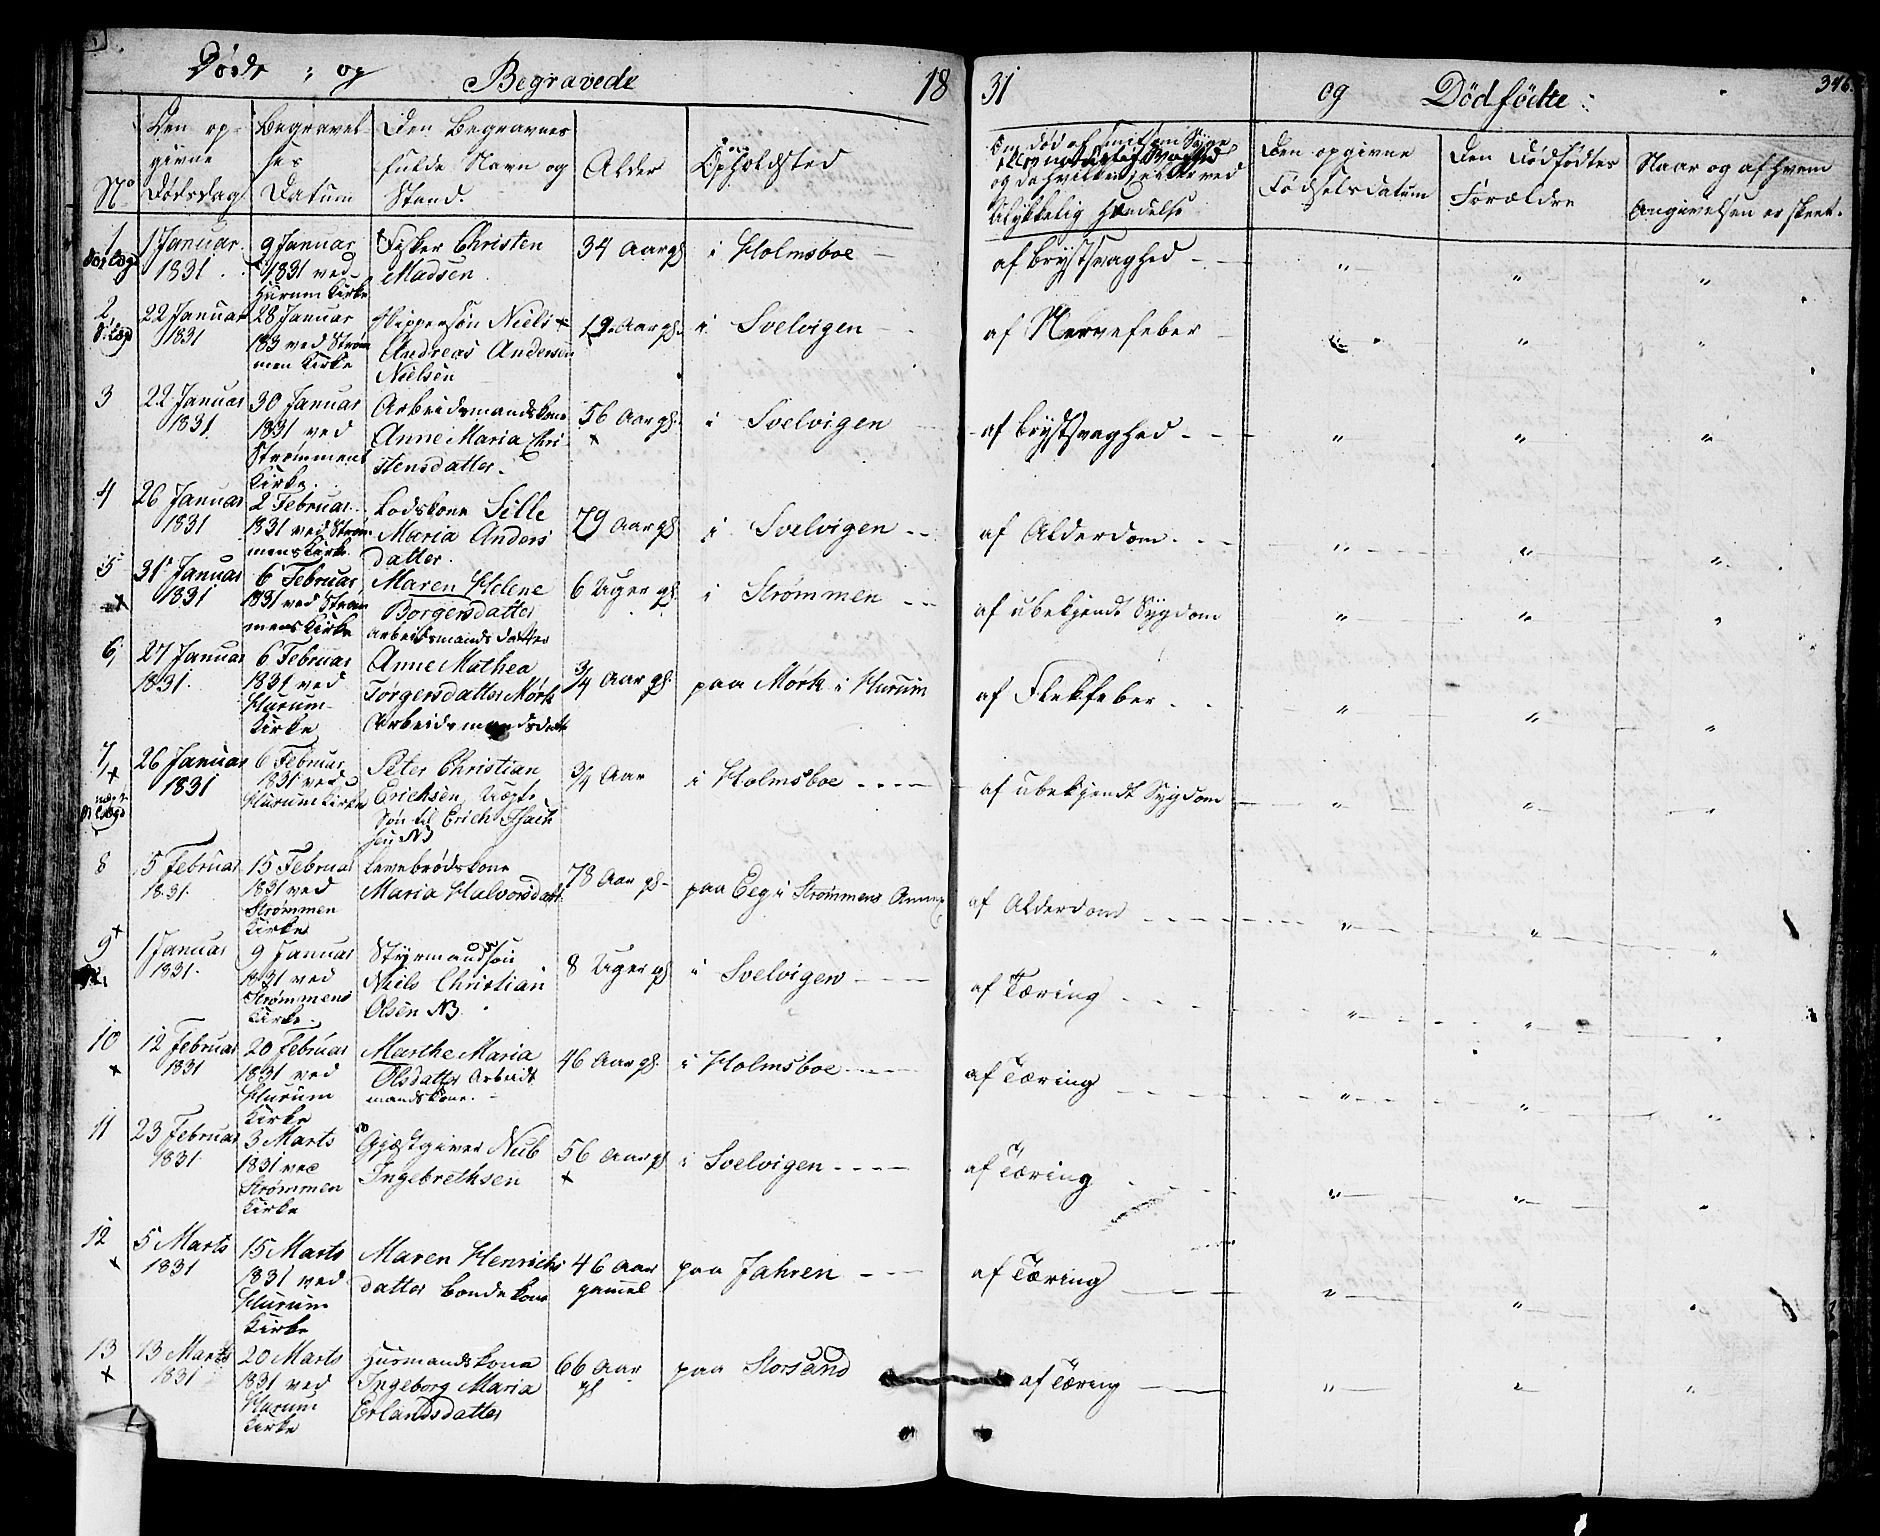 Døde og Begravede 1831 og Dödfödte 346.
No
Den op-
givne
Dødsdag
Begravel-
ses
Datum
Den Begravnes
fulde Navn og
Stand.
Alder
Opholdsted
og da hvilken eller ved
Ulykkelig Hændelse
Den opgivne
Födselsdatum
Den Dödfödtes
Forældre
Naar og af hvem
Angivelsen er skeet.
1
1 Januar
1831
9 Januar
1831 ved
Hurum Kirke
Fisker Christen
Madsen
34 Aar gl.
i Holmsboe
af Brystsvaghed
2
22 Januar
1831
28 Januar
183 ved Strøm
men Kirke
Skippersøn Niels
Andreas Andersen
Nielsen
i Svelvigen
af Nervefeber
3
22 Januar
1831
30 Januar
1831 ved
Strømmens
Kirke
Arbeidsmandskone
Anne Maria Chri-
stensdatter
56 Aar gl.
i Svelvigen
af Brystsvaghed
4
26 Januar
1831
2 Februar
1831 ved Strøm-
mens Kirke
Lodskone Sille
Maria Anders
datter
79 Aar gl.
i Svelvigen
af Alderdom
5
31 Januar
1831
6 Februar
1831 ved Strøm
mens Kirke
Maren Helene
Borgersdatter
Arbeidsmands datter
6 Uger gl.
i Strømmen
af ubekjendt Sÿgdom
6
27 Januar
1831
6 Februar
1831 ved
Hurum
Kirke
Anne Mathea
Torgersdatter Mørk
Arbeidsmandsdatt
3/4 Aar gl.
paa Mørk i Hurum
af Flekfeber
7
26 Januar
1831
6 Februar
1831 ved
Hurum Kirke
Peter Christian
Erichsen Uægte
Søn til Erich Isach
sen NB
3/4 Aar
i Holmsboe
af ubekjendt Sygdom
8
5 Februar
1831
15 Februar
1831 ved
Strømmen
Kirke
Levebrødskone
Maria Halvorsdatt
78 Aar gl.
paa Eeg i Strømmens Annex
af Alderdom
9
1 Januar
1831
9 Januar
1831 ved
Strømmens
Kirke
Styrmandssøn
Niels Christian
Olsen NB.
8 Uger gl
i Svelvigen
af Tæring
10
12 Februar
1831
20 Februar
1831 ved
Hurum
Kirke
Marthe Maria
Olsdatter Arbeidt
mandskone.
46 Aar gl.
i Holmsboe
af Tæring
11
23 Februar
1831
3 Marts
1831 ved
Strømmen
Kirke
Gjæstgiver Nub
Ingebrethsen
56 Aar gl
i Svelvigen
af Tæring
12
5 Marts
1831
15 Marts
1831 ved
Hurum
Kirke
Maren Henrichs
datter Bondekone
46 Aar
gamel
paa Jahren
af Tæring
13
13 Marts
1831
20 Marts
1831 ved
Hurum
Kirke
Husmandskone
Ingeborg Maria
Erlandsdatter
66 Aar
gl
paa Storsand
af Tæring